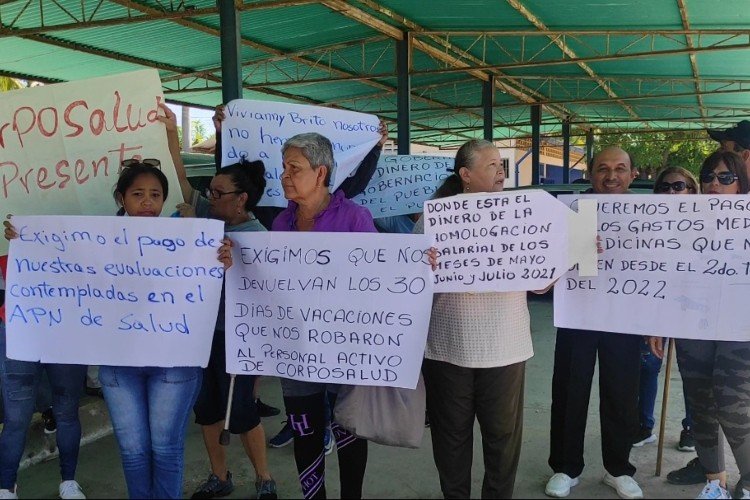 rposalud
Presente
Vivianny Brito nosotros
no he
do a
Dinero de
Gobernación
del Pueblo
Exigimos el pago de
nuestras evaluaciones
contempladas en el
APN de Salud
EXIGIMOS QUE NOS
DEVUELVAN LOS 30
DIAS DE VACACIONES
QUE NOS ROBARON
AL PERSONAL ACTIVO
DE CORPOSALUD
DONDE ESTA EL
DINERO DE LA
HOMOLOGACION
SALARIAL DE LOS
MESES DE MAYO
JUNIO y JULIO 2021
UEREMOS EL PAGO
OS GASTOS MED
DICINAS QUE N
EN DESDE EL 2do. T
DEL 2022